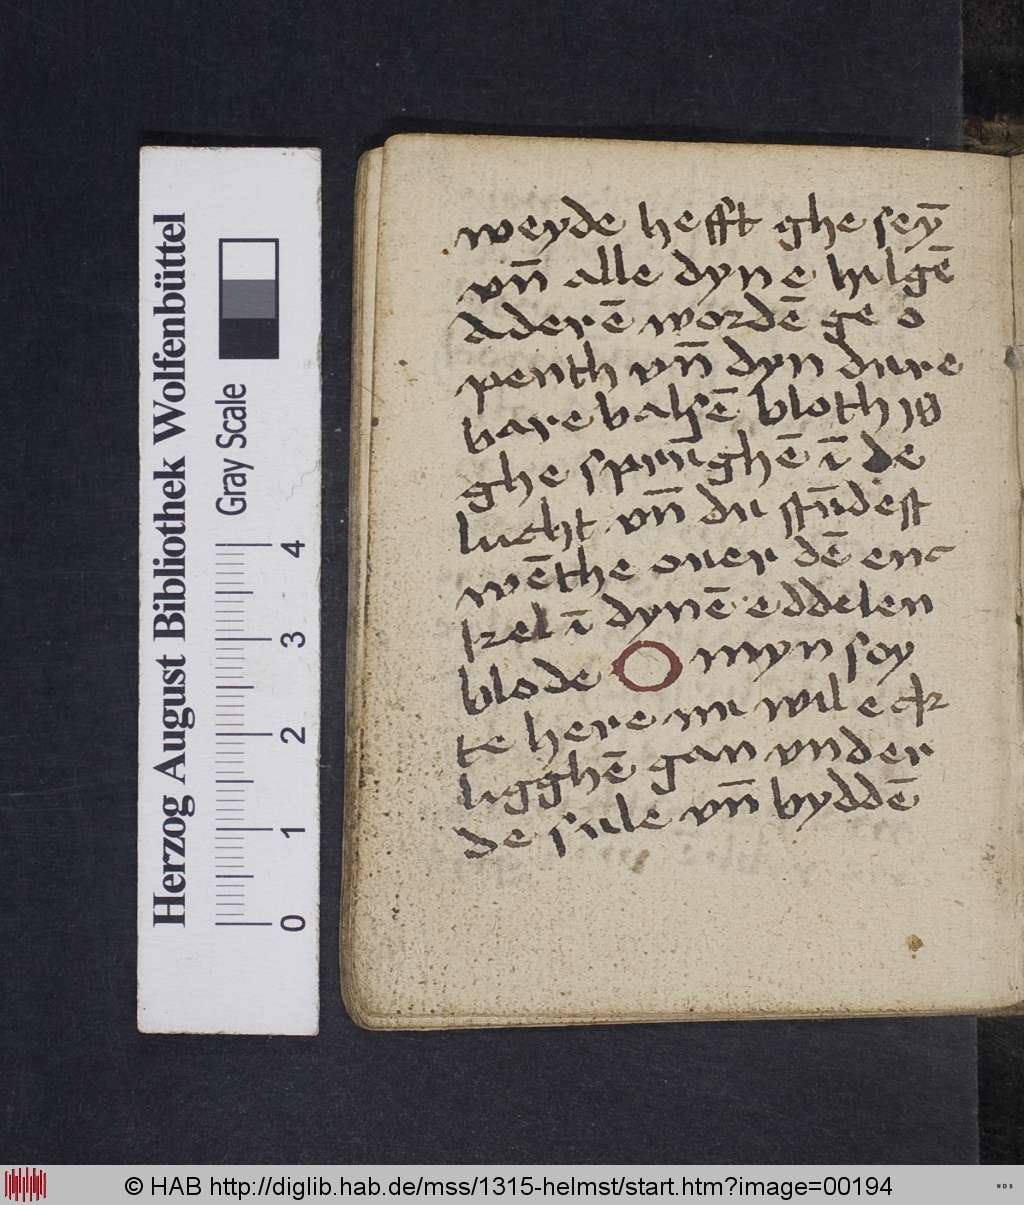 weyde hefft ghe seyn̄
vn̄ alle dyne hilgē
aderē wordē ge o
penth vn̄ dyn dure
bare balsē bloth is
ghe sprūghē ī de
lucht vn̄ du stūdest
wēthe ouer dē enc
kel ī dynē eddelen
blode O myn soy
te here nu wil eck
ligghē gan vnder
de sule vn̄ byddē
Herzog August Bibliothek Wolfenbüttel
Gray Scale
0 1 2 3 4
© HAB http://diglib.hab.de/mss/1315-helmst/start.htm?image=00194